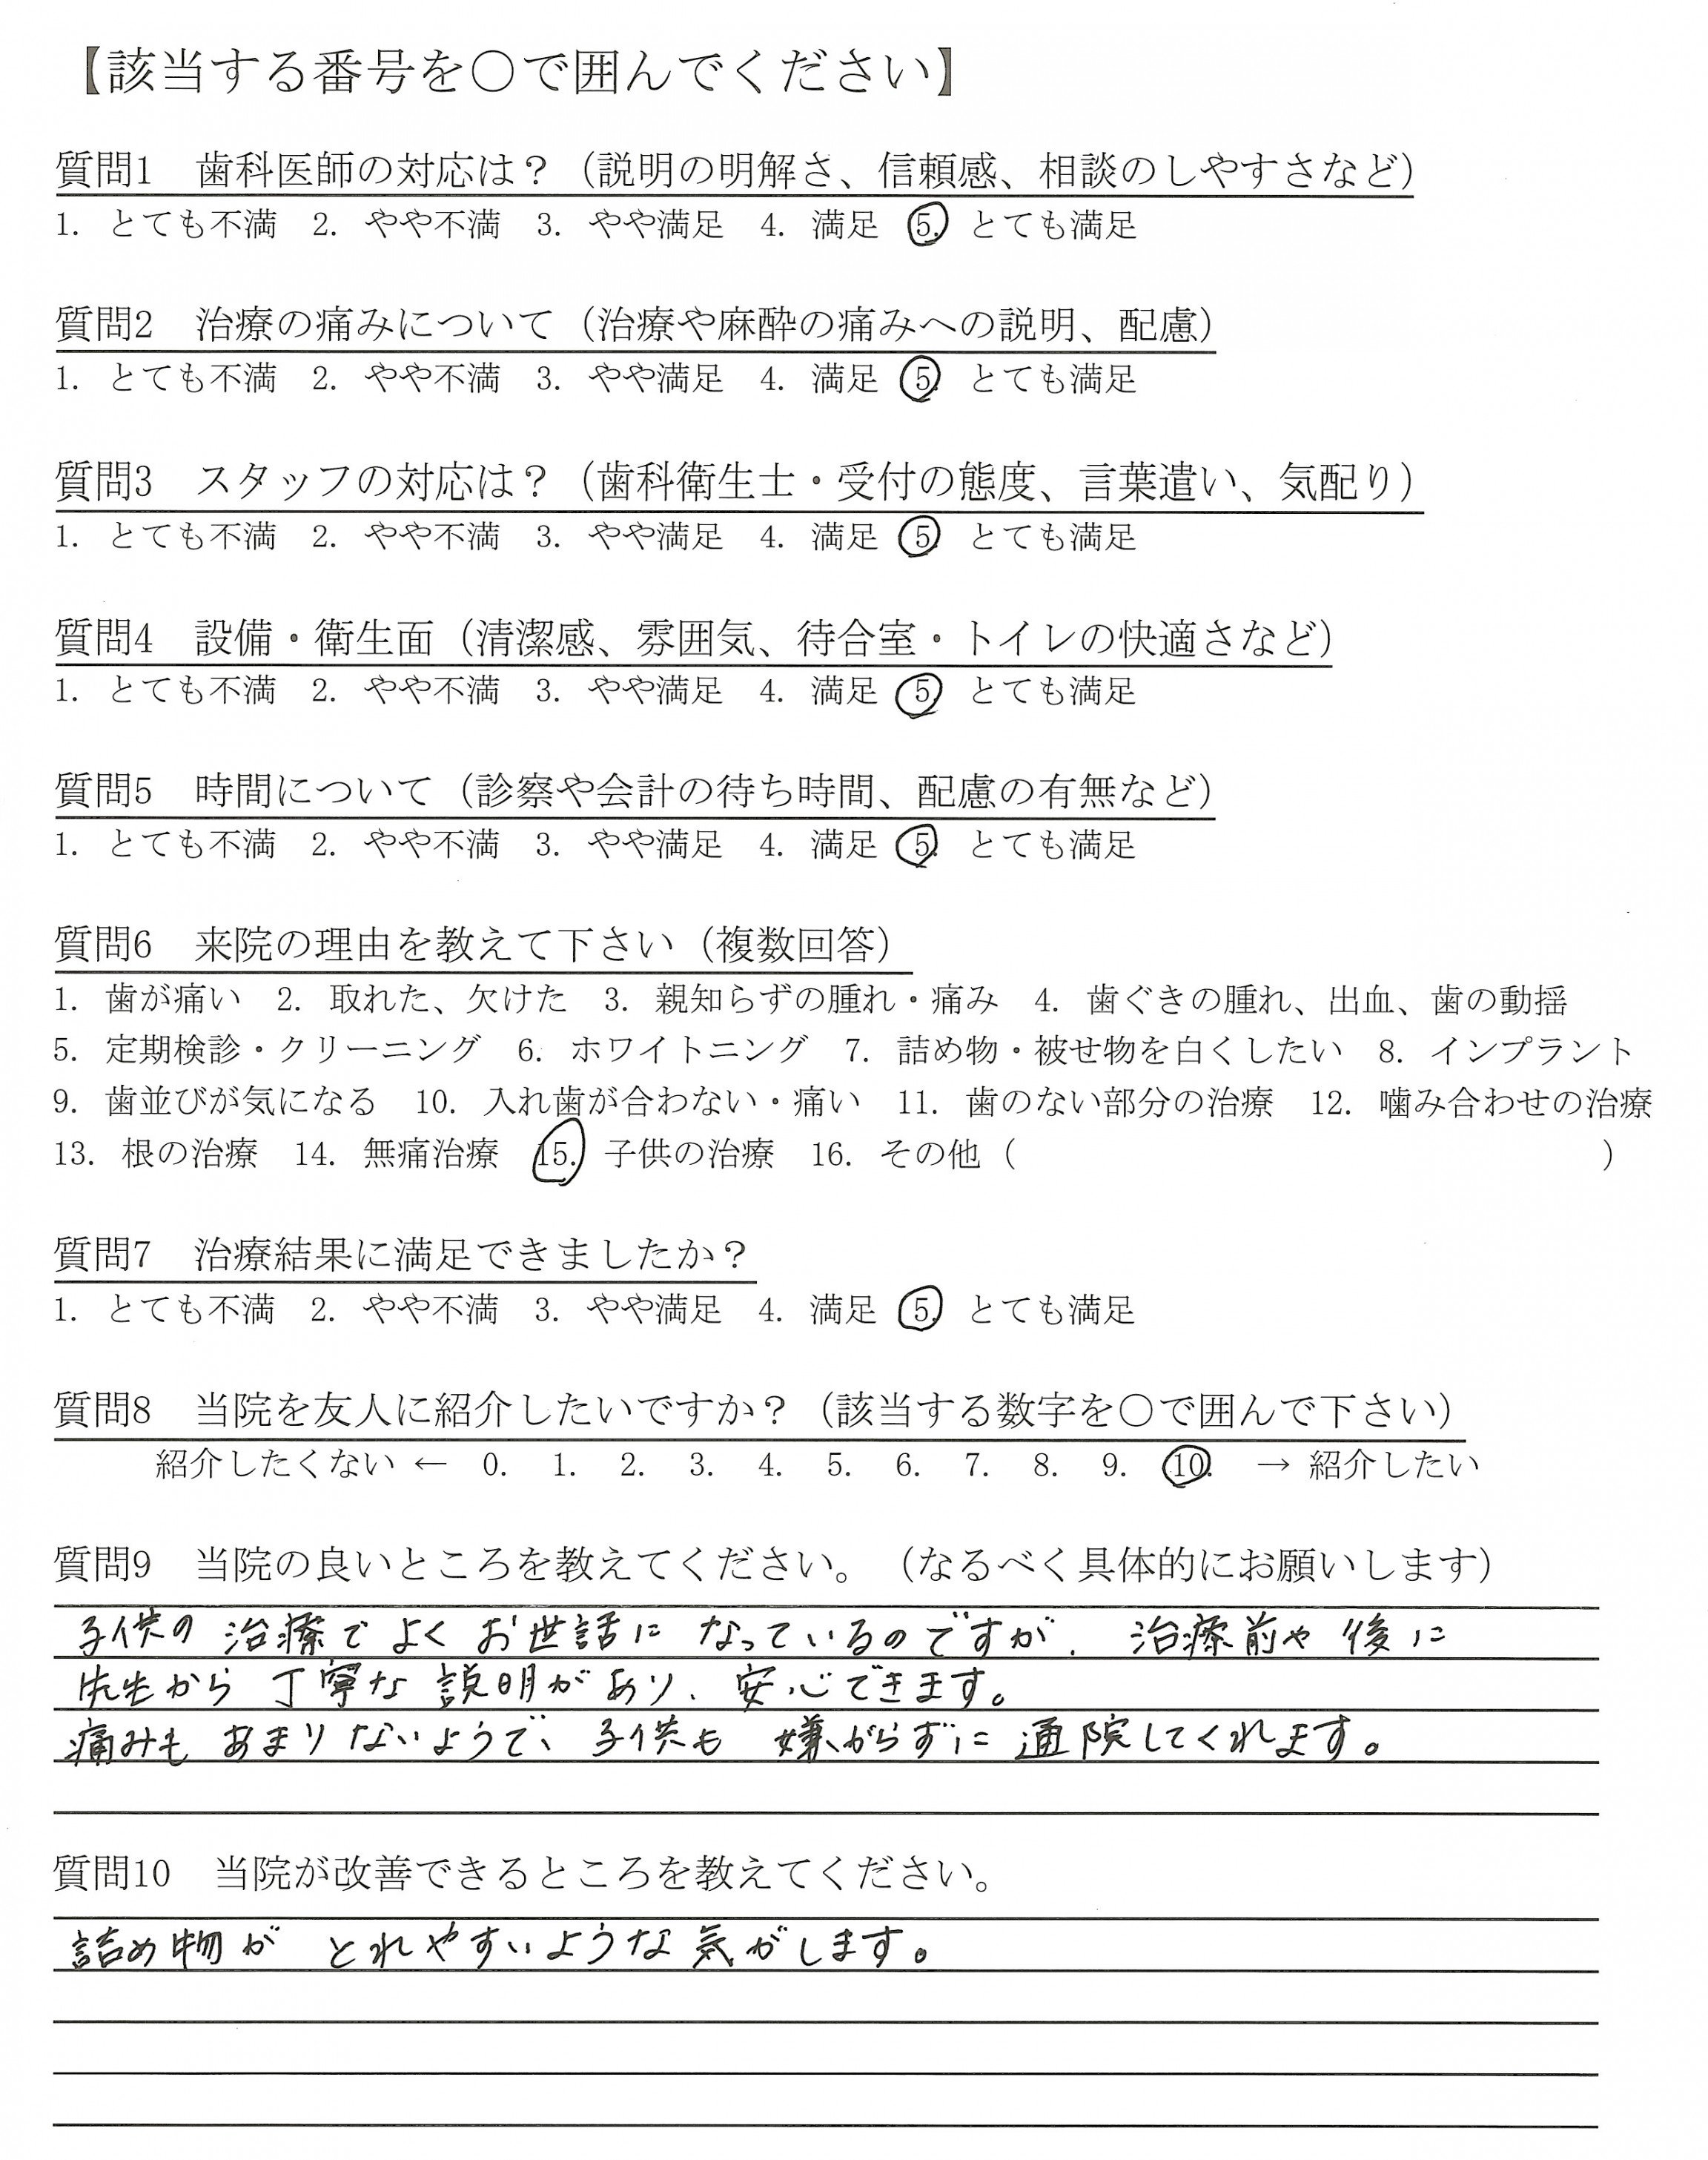 【該当する番号を〇で囲んでください】
質問1 歯科医師の対応は？（説明の明解さ、信頼感、相談のしやすさなど）
1. とても不満 2. やや不満 3. やや満足 4. 満足 5. とても満足
質問2 治療の痛みについて（治療や麻酔の痛みへの説明、配慮）
1. とても不満 2. やや不満 3. やや満足 4. 満足 5. とても満足
質問3 スタッフの対応は？（歯科衛生士・受付の態度、言葉遣い、気配り）
1. とても不満 2. やや不満 3. やや満足 4. 満足 5. とても満足
質問4 設備・衛生面（清潔感、雰囲気、待合室・トイレの快適さなど）
1. とても不満 2. やや不満 3. やや満足 4. 満足 5. とても満足
質問5 時間について（診察や会計の待ち時間、配慮の有無など）
1. とても不満 2. やや不満 3. やや満足 4. 満足 5. とても満足
質問6 来院の理由を教えて下さい（複数回答）
1. 歯が痛い 2. 取れた、欠けた 3. 親知らずの腫れ・痛み 4. 歯ぐきの腫れ、出血、歯の動揺
5. 定期検診・クリーニング 6. ホワイトニング 7. 詰め物・被せ物を白くしたい 8. インプラント
9. 歯並びが気になる 10. 入れ歯が合わない・痛い 11. 歯のない部分の治療 12. 噛み合わせの治療
13. 根の治療 14. 無痛治療 15. 子供の治療 16. その他（ ）
質問7 治療結果に満足できましたか？
1. とても不満 2. やや不満 3. やや満足 4. 満足 5. とても満足
質問8 当院を友人に紹介したいですか？（該当する数字を〇で囲んで下さい）
紹介したくない ← 0. 1. 2. 3. 4. 5. 6. 7. 8. 9. 10. → 紹介したい
質問9 当院の良いところを教えてください。（なるべく具体的にお願いします）
子供の治療でよくお世話になっているのですが、治療前や後に
先生から丁寧な説明があり、安心できます。
痛みもあまりないようで、子供も嫌がらずに通院してくれます。
質問10 当院が改善できるところを教えてください。
詰め物がとれやすいような気がします。